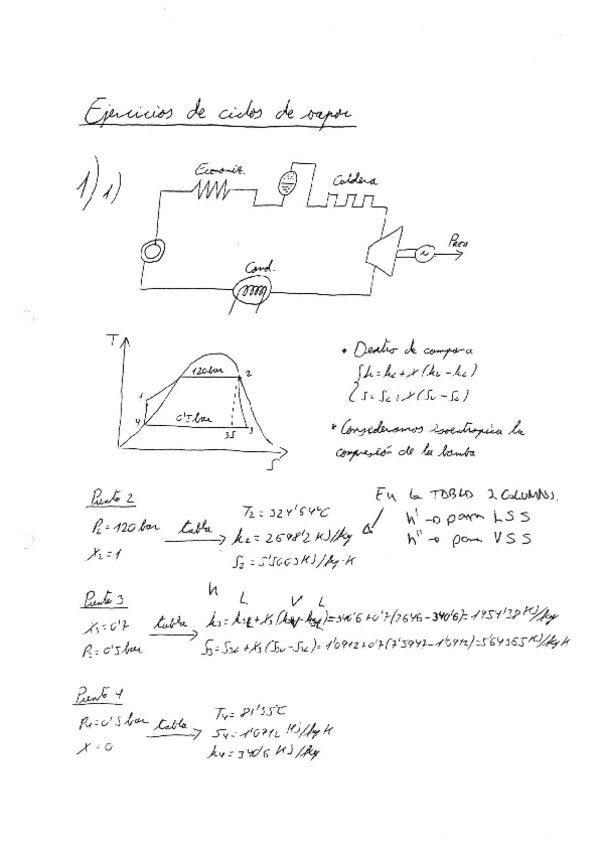 Ejercicios de ciclos de vapor
1) 1)
Economiz.
Caldera
Cond.
T
120 bar
2
1
0'5 bar
4
3S
3
S
• Dentro de campana
h = hL + x (hv - hL)
S = SL + x (Sv - SL)
* Consideramos isoentropica la
compresión de la bomba
Punto 2
P2 = 120 bar
X2 = 1
tabla
T2 = 324'64ºC
h2 = 2698'2 KJ/kg
S2 = 5'5003 KJ/kg·K
En la TABLA 2 COLUMNAS.
h' → para LSS
h'' → para VSS
Punto 3
X3 = 0'7
P3 = 0'5 bar
tabla
h3 = h3L + X3 (h3V - h3L) = 340'6 + 0'7 (2646 - 340'6) = 1954'38 KJ/kg
S3 = S3L + X3 (S3V - S3L) = 1'0912 + 0'7 (7'5947 - 1'0912) = 5'64365 KJ/kg K
Punto 4
P4 = 0'5 bar
X = 0
tabla
T4 = 81'35ºC
S4 = 1'0912 KJ/kg K
h4 = 340'6 KJ/kg